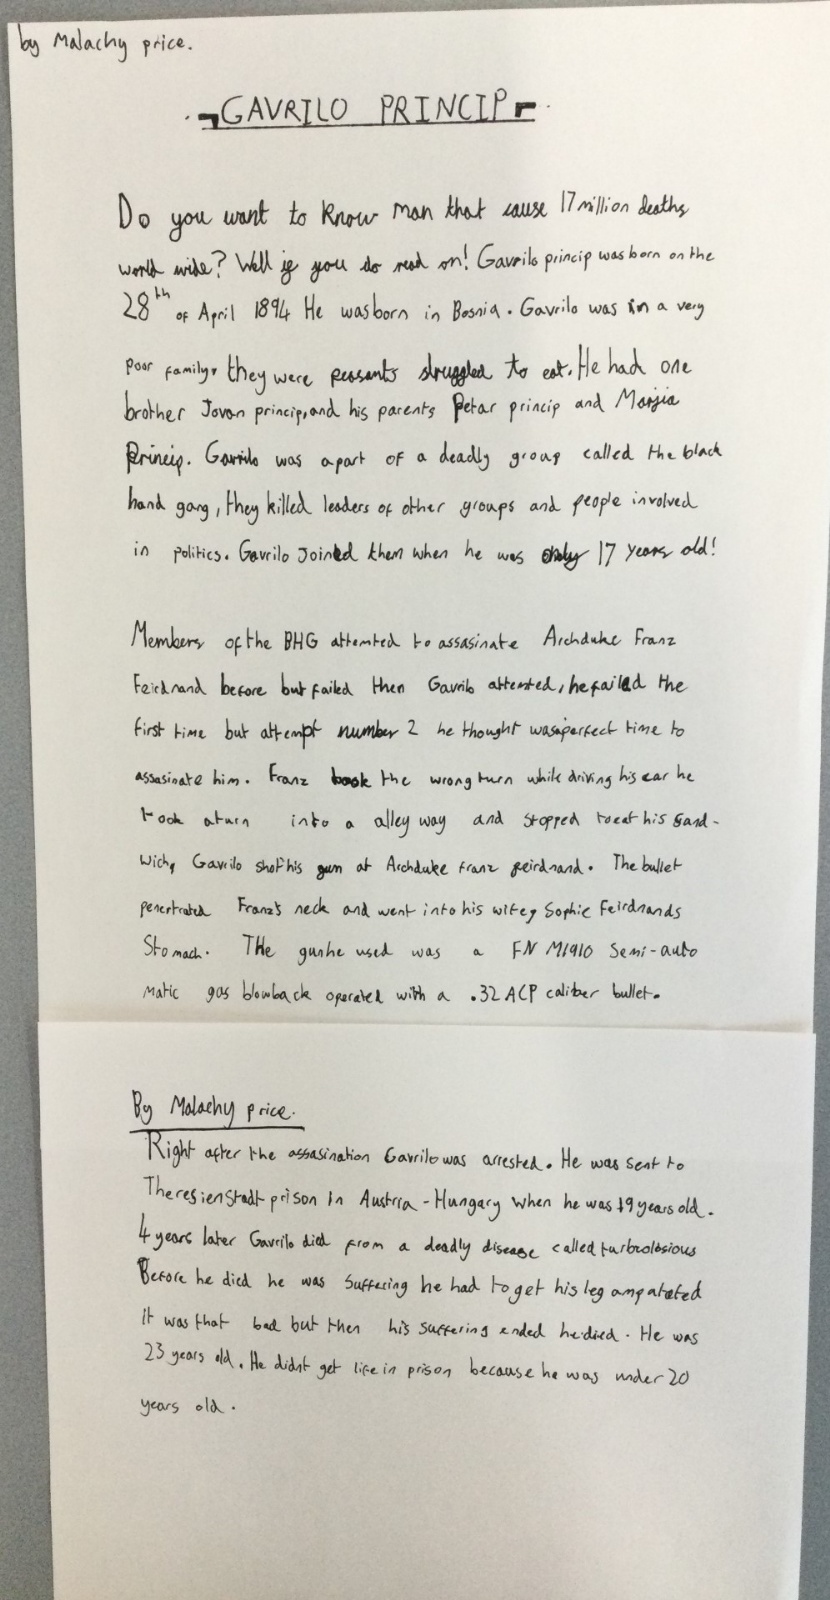 by Malachy price.
GAVRILO PRINCIP
Do you want to know man that cause 17 million deaths
world wide? Well if you do read on! Gavrilo princip was born on the
28th of April 1894 He was born in Bosnia. Gavrilo was in a very
poor family, they were peasants struggled to eat. He had one
brother Jovan princip, and his parents Petar princip and Marjia
Princip. Gavrilo was apart of a deadly group called the black
hand gang, they killed leaders of other groups and people involved
in politics. Gavrilo Joined them when he was only 17 years old!
Members of the BHG attemted to assasinate Archduke Franz
Feirdnand before but failed then Gavrilo attemted, he failed the
first time but attempt number 2 he thought was a perfect time to
assasinate him. Franz took the wrong turn while driving his car he
took a turn into a alley way and stopped to eat his sand-
wich, Gavrilo shot his gun at Archduke franz feirdnand. The bullet
penertrated Franz's neck and went into his wifey Sophie Feirdnands
Stomach. The gun he used was a FN M1910 Semi-auto
matic gas blowback operated with a .32 ACP caliber bullet.
By Malachy price.
Right after the assasination Gavrilo was arrested. He was sent to
Theresienstadt prison in Austria-Hungary when he was 19 years old.
4 years later Gavrilo died from a deadly disease called turbcolosious
Before he died he was suffering he had to get his leg ampatated
it was that bad but then his suffering ended he died. He was
23 years old. He didnt get life in prison because he was under 20
years old.